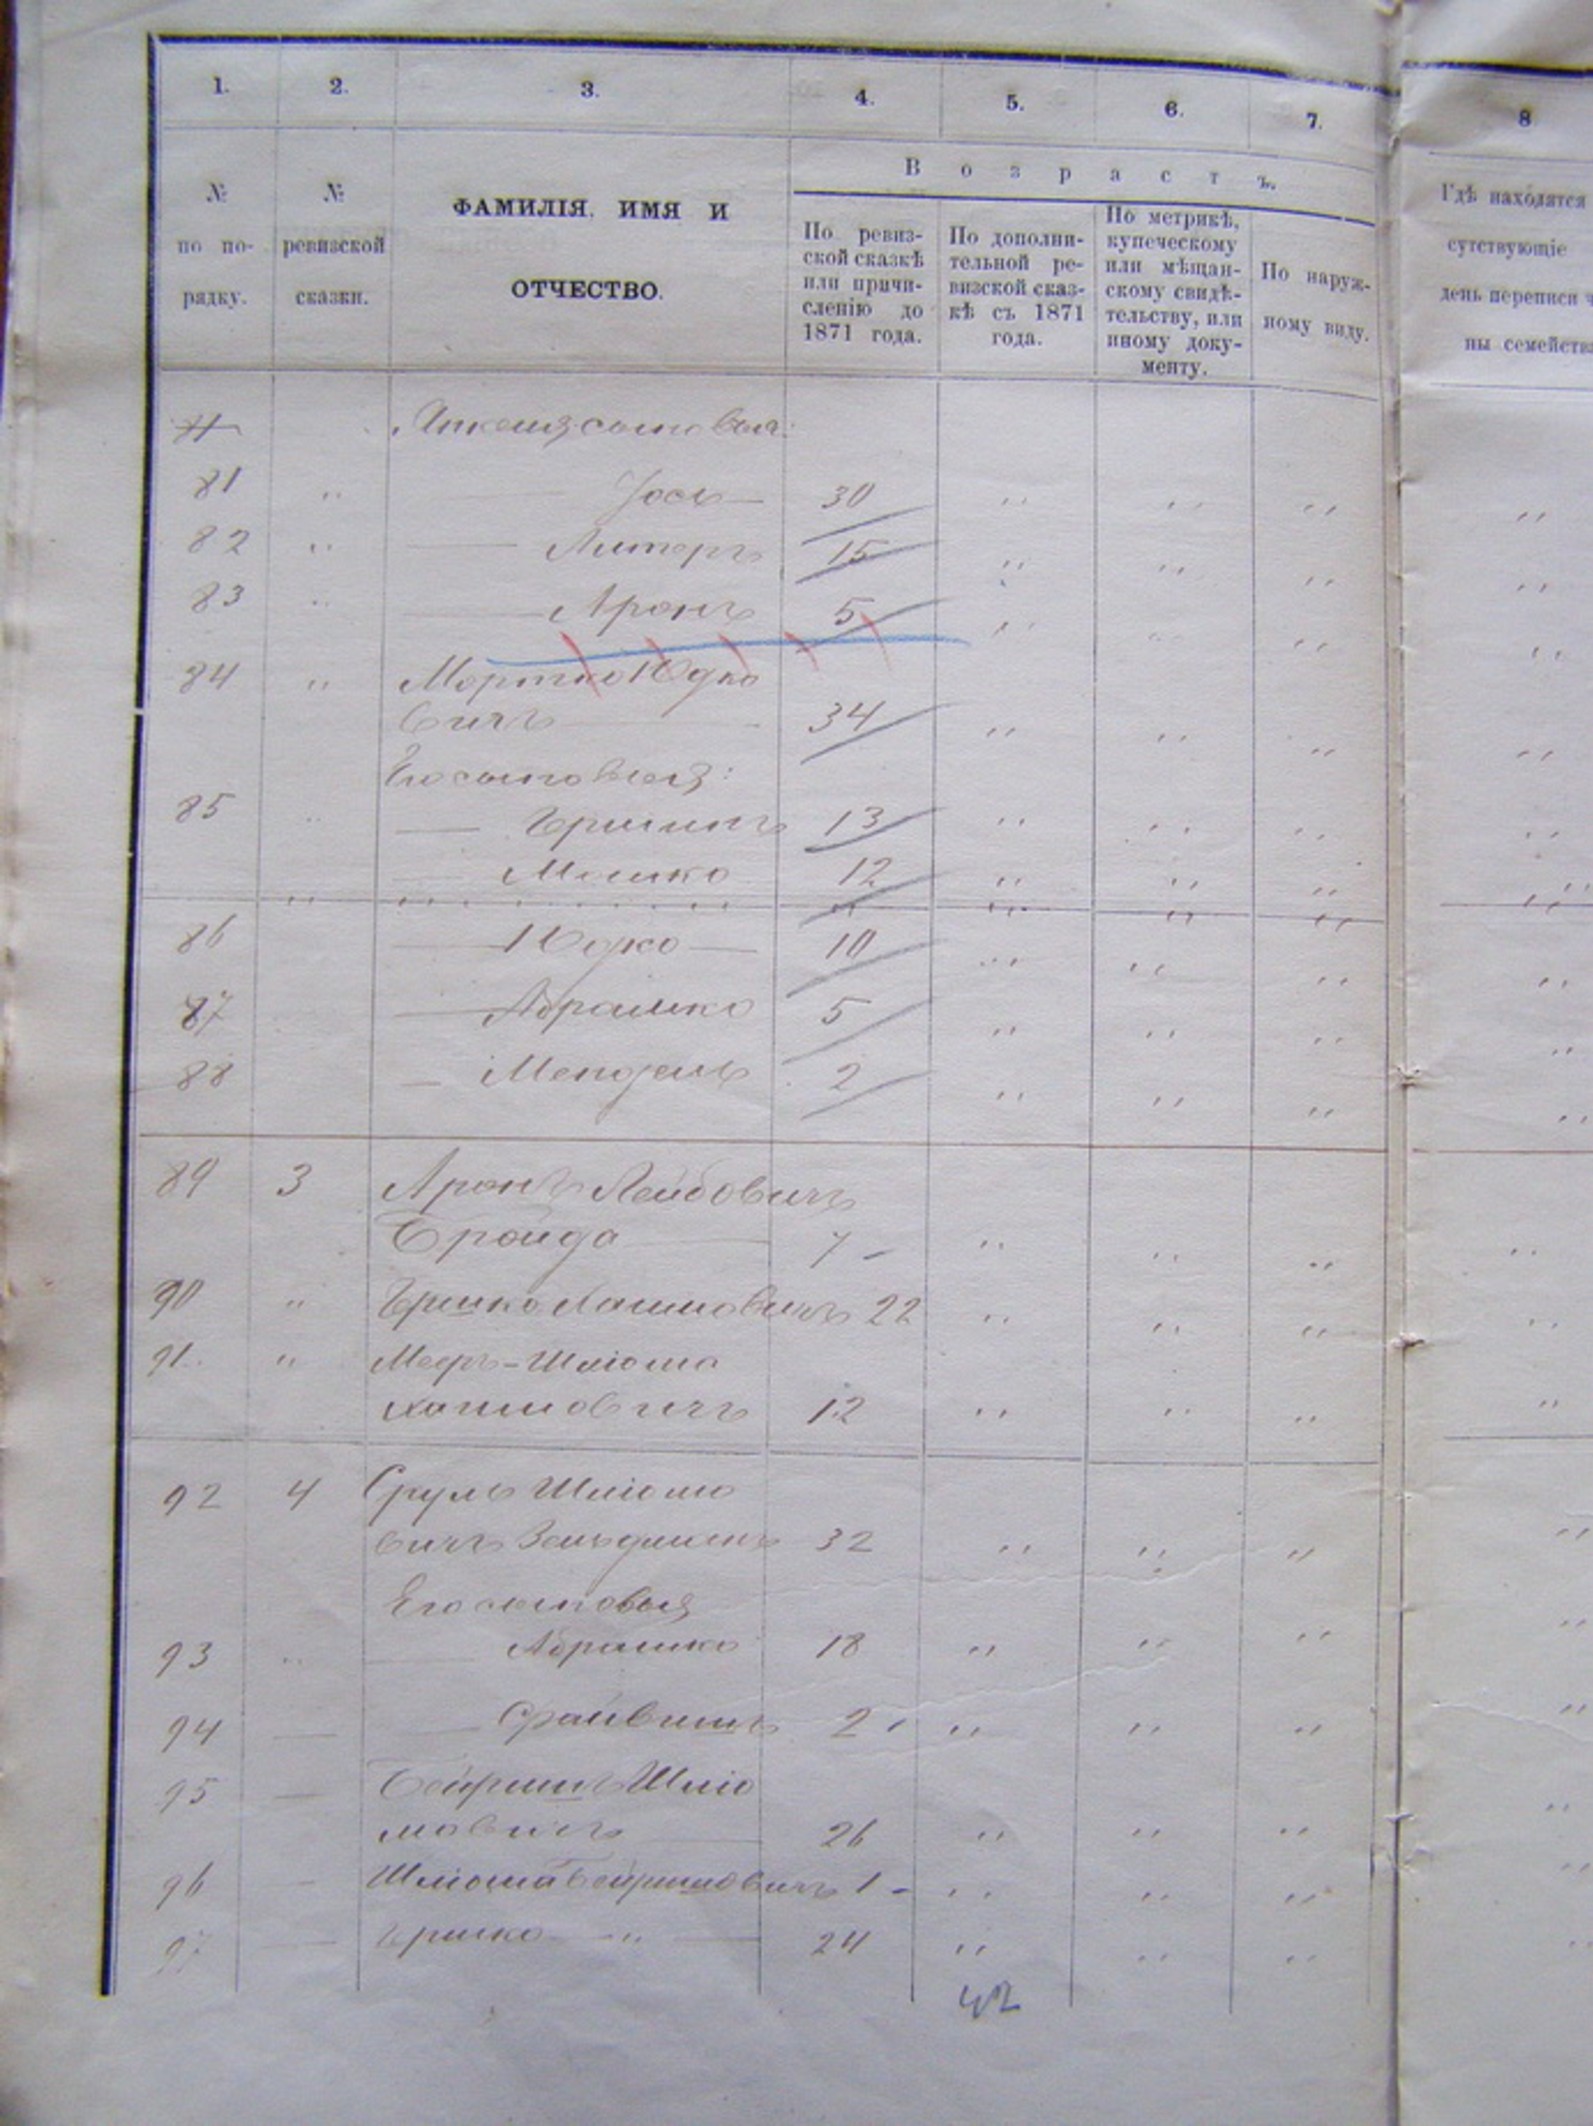 1. 2. 3. 4. 5. 6. 7. 8
№ по по-рядку.
№ ревизской сказки.
ФАМИЛІЯ. ИМЯ И
ОТЧЕСТВО.
Возрастъ.
По ревиз-
ской сказкѣ
или причи-
сленію до
1871 года.
По дополни-
тельной ре-
визской сказ-
кѣ съ 1871
года.
По метрикѣ,
купеческому
или мѣщан-
скому свидѣ-
тельству, или
иному доку-
менту.
По наруж-
ному виду.
Гдѣ находятся
сутствующіе
день переписи ч
ны семейства
сыновья:
81 " Іось — 30 " " " "
82 " — Литеръ 15 " " " "
83 " — Аронъ 5 " " " "
84 " Мортко Юдко
вичъ — 34 " " " "
Его сыновья:
85 " — Гришинъ 13 " " " "
Мошко 12 " " " "
86 — Юдко — 10 " " " "
87 — Абрашко 5 " " " "
88 — Мендель 2 " " " "
89 3 Аронъ Лейбовичъ
Бройда — 7 - " " " "
90 " Гршко Хаимовичъ 22 " " " "
91. " Меръ-Шліома
Хаимовичъ 12 " " " "
92 4 Сруль Шліомо
вичъ Зельдманъ 32 " " " "
Его сыновья
93 " — Абрашко 18 " " " "
94 — — Файвишъ 2 " " " "
95 — Бейришъ Шліо
мовичъ — 26 " " " "
96 — Шліома Бейришовичъ 1 - " " " "
97 — Гршко — " — 24 " " " "
42